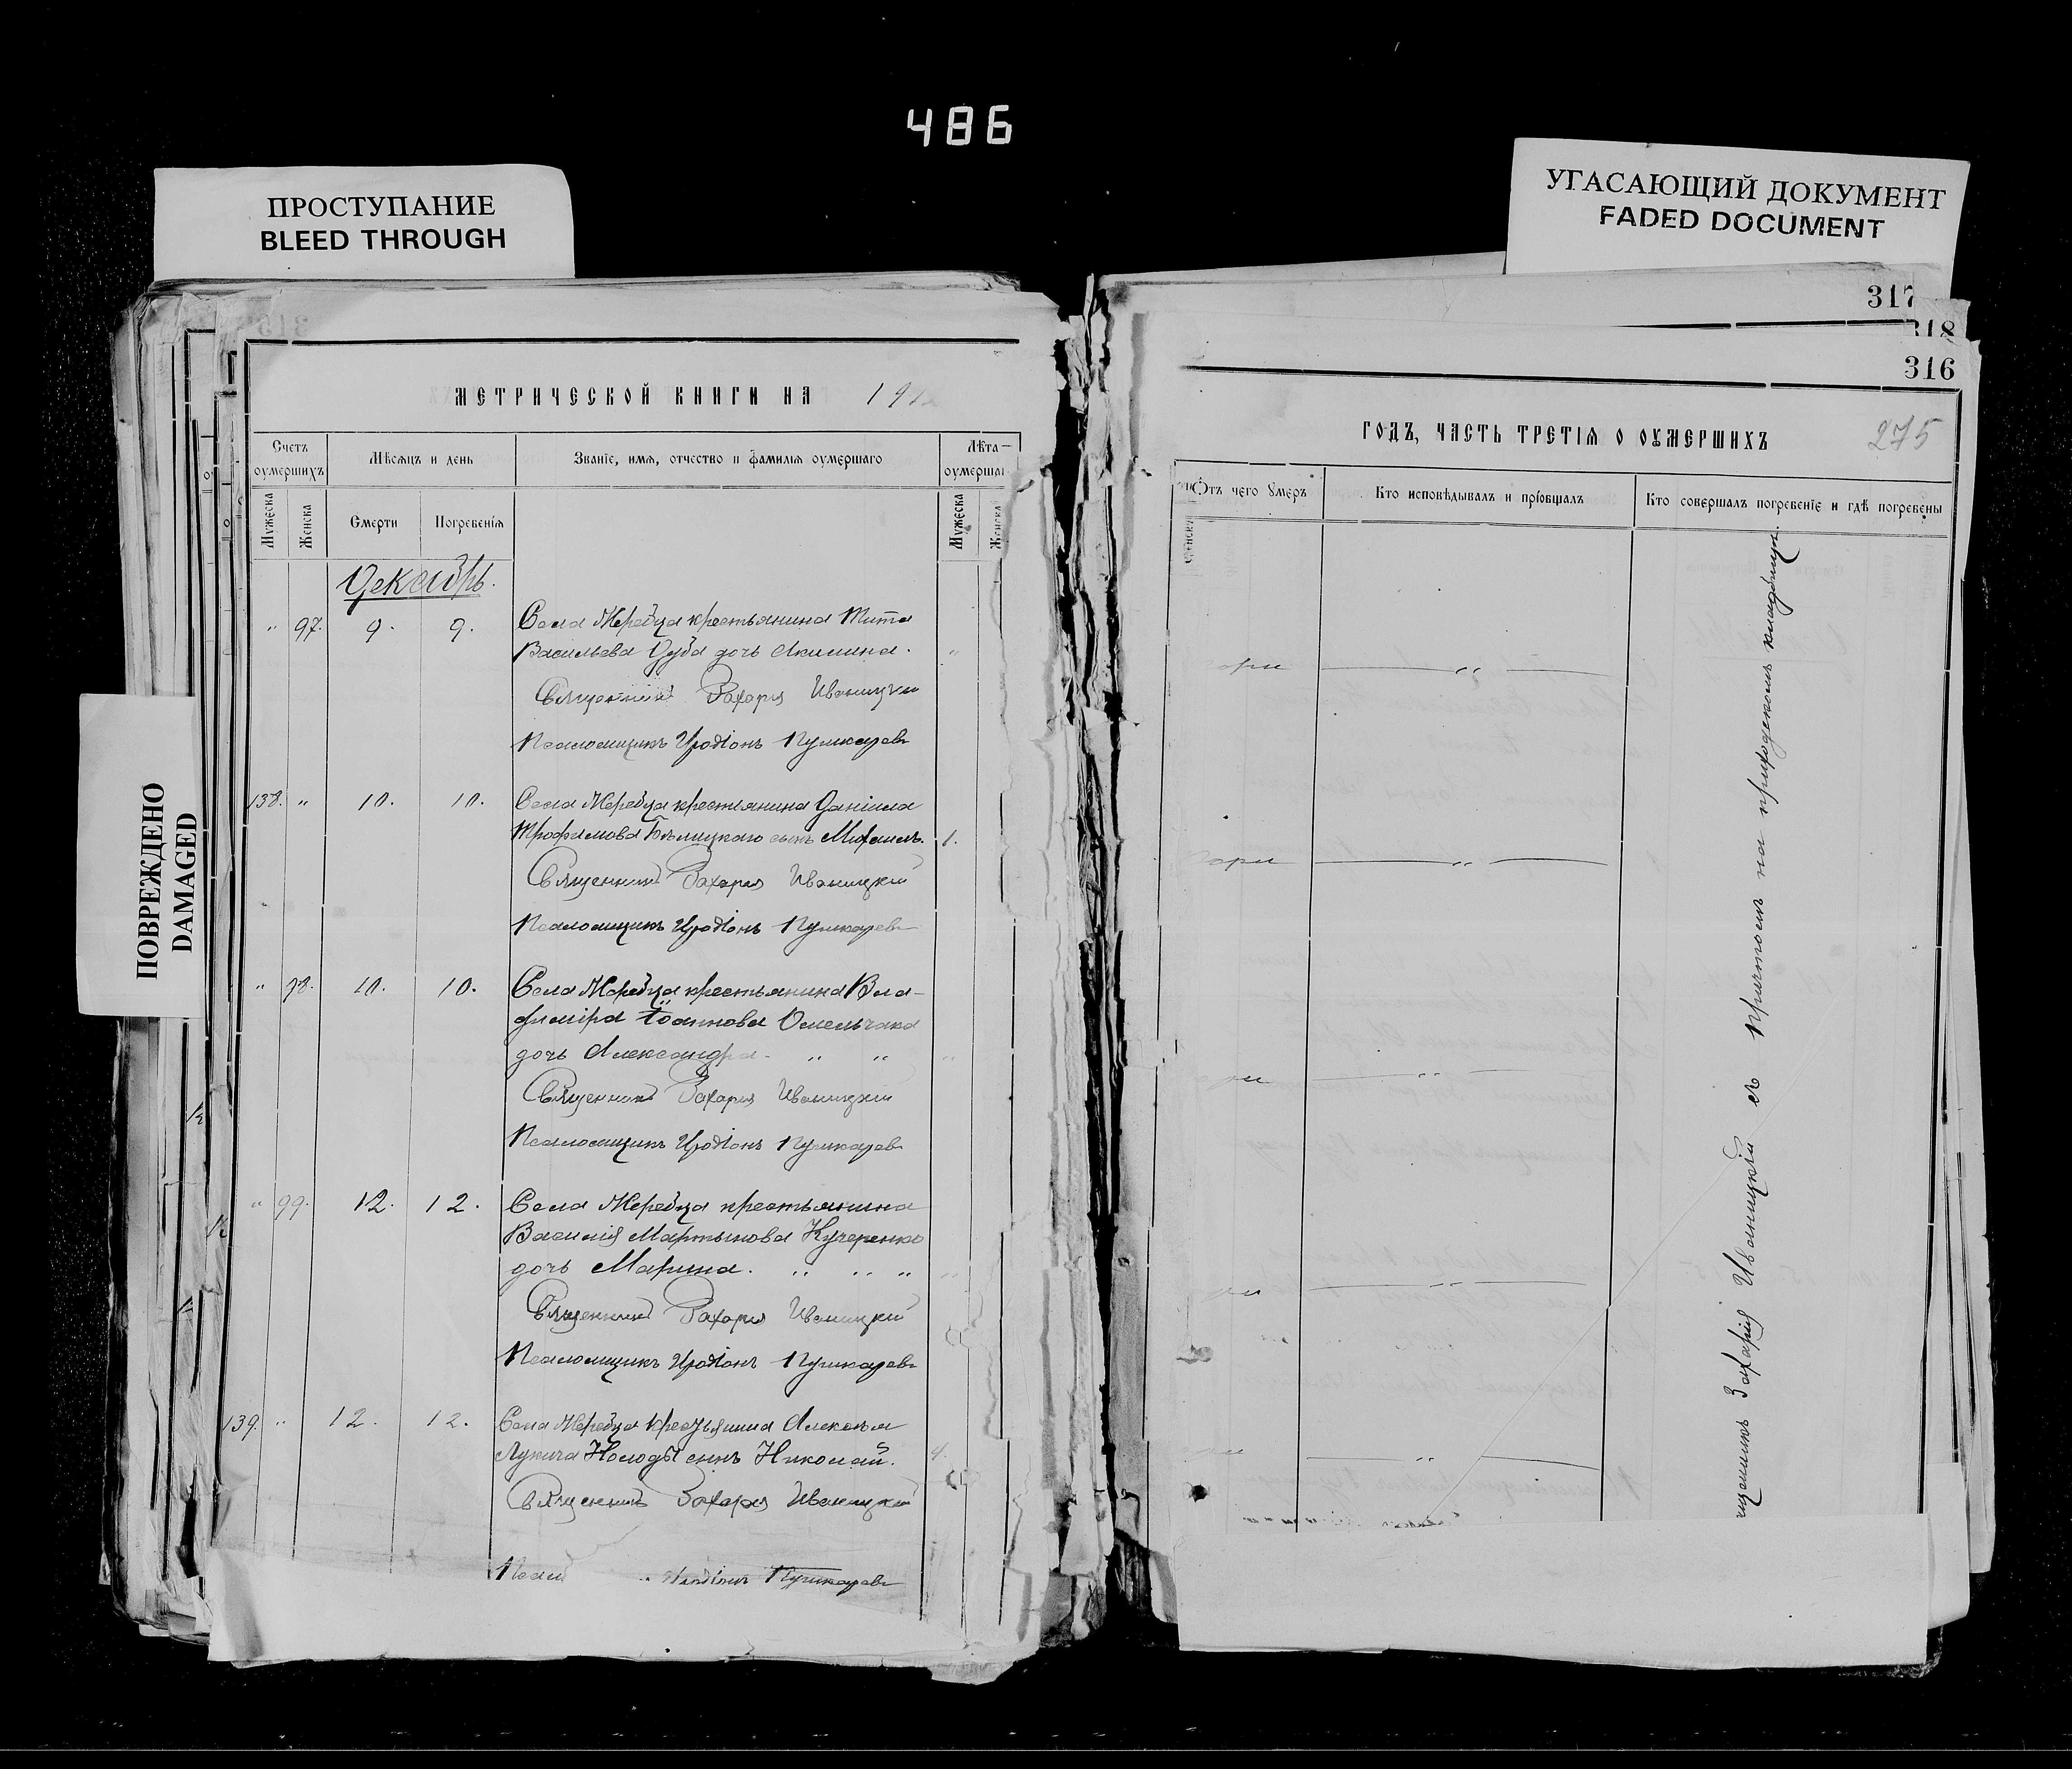 486
ПРОСТУПАНИЕ
BLEED THROUGH
УГАСАЮЩИЙ ДОКУМЕНТ
FADED DOCUMENT
ПОВРЕЖДЕНО
DAMAGED
317
318
316
МЕТРИЧЕСКОЙ КНИГИ НА 191
Счетъ оумершихъ
Мѣсяцъ и день
Званіе, имя, отчество и фамилія оумершаго
Лѣта оумерша
Мужеска
Женска
Смерти
Погребенія
Мужеска
Женска
Декабрь.
" 97. 9. 9. Села Жеребца крестьянина Тита
Васильева Дуба дочь Акилина. "
Священникъ Захарія Иваницкій
Псаломщикъ Иродіонъ Пушкаревъ
138. " 10. 10. Села Жеребца крестьянина Даніила
Трофимова Бѣлицкаго сынъ Михаилъ. 1.
Священникъ Захарія Иваницкій
Псаломщикъ Иродіонъ Пушкаревъ
" 98. 10. 10. Села Жеребца крестьянина Вла-
диміра Іоаннова Омельчака
дочь Александра. " " "
Священникъ Захарія Иваницкій
Псаломщикъ Иродіонъ Пушкаревъ
" 99. 12. 12. Села Жеребца крестьянина
Василія Мартынова Кучеренко
дочь Марина. " " " "
Священникъ Захарія Иваницкій
Псаломщикъ Иродіонъ Пушкаревъ
139. " 12. 12. Села Жеребца крестьянина Алексѣя
Лукича сынъ Николай. 4.
Священникъ Захарія Иваницкій
Псал Иродіонъ Пушкаревъ
ГОДЪ, ЧАСТЬ ТРЕТІЯ О ОУМЕРШИХЪ 275
Отъ чего умеръ
Кто исповѣдывалъ и пріобщалъ
Кто совершалъ погребеніе и гдѣ погребены
Женска
— " —
— " —
— " —
— " —
— " —
щенникъ Захарія Иваницкій съ причтомъ на приходскомъ кладбищѣ.